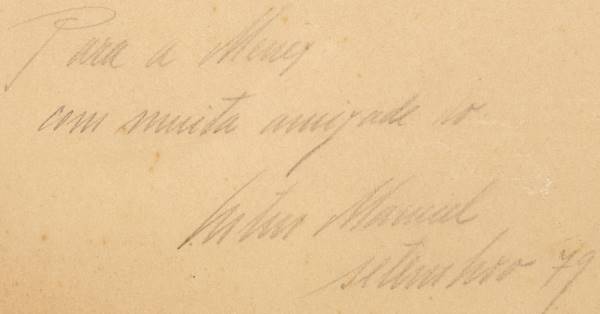 Para a Menez
com muita amizade do
Manuel
setembro 79